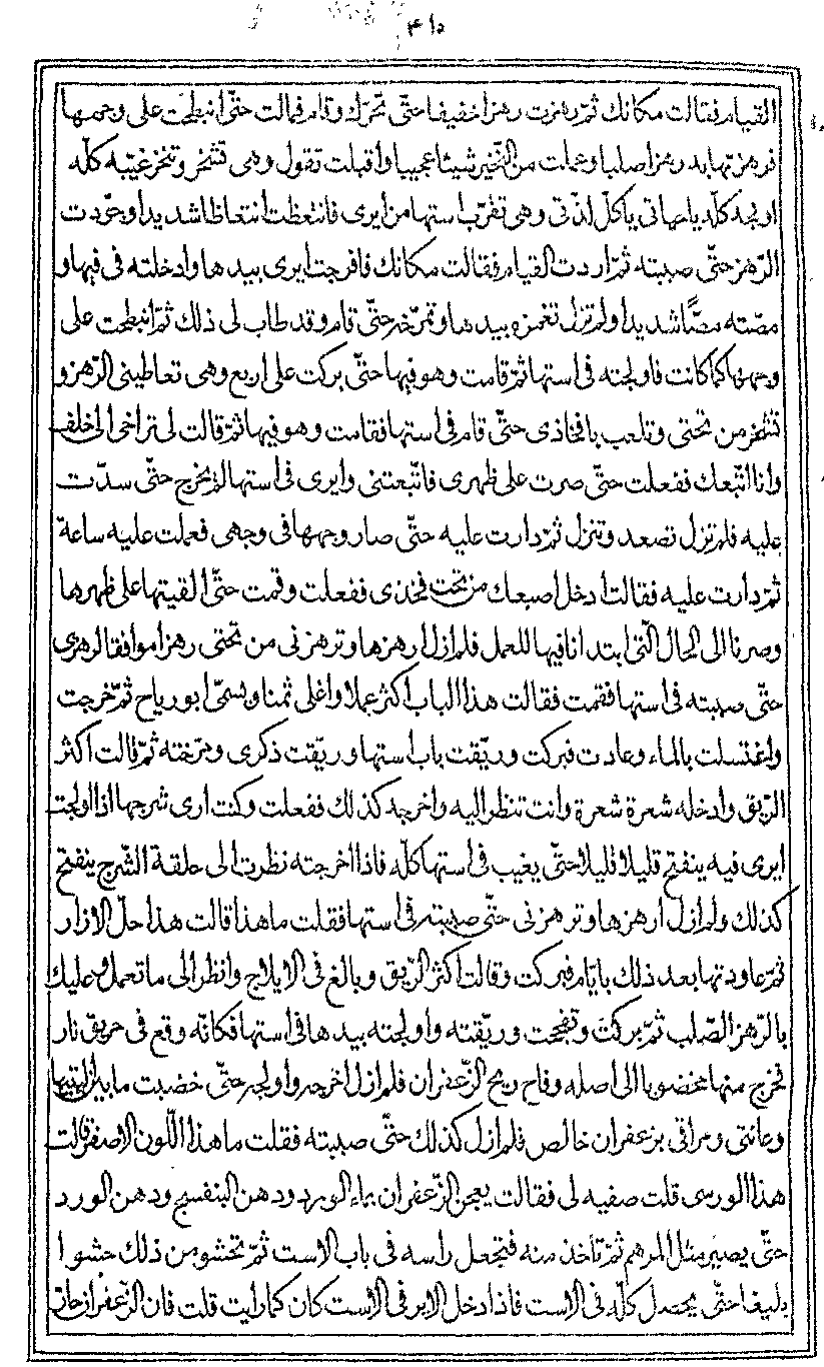 ۴۱۵
القيام فقالت مكانك ثمّ رهزت رهزا خفيفا حتّى تحرّك وقام فمالت حتّى انبطحت على وجهها
فرهزتها به رهزا صلبا وعملت من النّخير شيئا عجيبا واقبلت تقول وهى تشخر وتنخر غيّبه كلّه
اولجه كلّه ياحياتى ياكلّ لذّتى وهى تقرّب استها من ايرى فانتعظت انتعاظا شديدا وجوّدت
الرّهز حتّى صببته ثمّ اردت القيام فقالت مكانك فاخرجت ايرى بيدها وادخلته فى فيها و
مصّته مصّا شديدا ولم تزل تغمزه بيدها وتمرّخه حتّى قام وقد طاب لى ذلك ثمّ انبطحت على
وجهها كما كانت فاولجته فى استها ثمّ قامت وهو فيها حتّى بركت على اربع وهى تعاطينى الرّهز و
تنخر من تحتى وتلعب بافخاذى حتّى قام فى استها فقامت وهو فيها ثمّ قالت لى تراخى الى خلف
وانا اتّبعك ففعلت حتّى صرت على ظهرى فاتّبعتنى وايرى فى استها لم يخرج حتّى سدّت
عليه فلم تزل تصعد وتنزل ثمّ دارت عليه حتّى صار وجهها فى وجهى فعملت عليه ساعة
ثمّ دارت عليه فقالت ادخل اصبعك من تحت فخذى ففعلت وقمت حتّى القيتها على ظهرها
وصرنا الى الحال الّتى ابتدانا فيها للعمل فلم ازل ارهزها وترهزنى من تحتى رهزا موافقا لرهزى
حتّى صببته فى استها فقمت فقالت هذا الباب اكثر عملا واغلى ثمنا ويسمّى ابو رياح ثمّ خرجت
واغتسلت بالماء وعادت فبركت وريّقت باب استها وريّقت ذكرى ومرّخته ثمّ قالت اكثر
الرّيق وادخله شعرة شعرة وانت تنظر اليه واخرجه كذلك ففعلت وكنت ارى شرجها اذا اولجت
ايرى فيه ينفتح قليلا قليلا حتّى يغيب فى استها كلّه فاذا اخرجته نظرت الى حلقة الشّرج ينفتح
كذلك ولم ازل ارهزها وترهزنى حتّى صببته فى استها فقلت ما هذا قالت هذا حلّ الازار
ثمّ عاودتها بعد ذلك بايّام فبركت وقالت اكثر الرّيق وبالغ فى الايلاج وانظر الى ما تعمل وعليك
بالرّهز الصّلب ثمّ بركت وتفجّحت وريّقته واولجته بيدها فى استها فكانّه وقع فى حريق نار
فخرج منها مخضوبا الى اصله وفاح ريح الزّعفران فلم ازل اخرجه واولجه حتّى خضبت ما بين اليتيها
وعانتى ومراقى بزعفران خالص فلم ازل كذلك حتّى صببته فقلت ما هذا اللّون الاصفر قالت
هذا الورسى قلت صفيه لى فقالت يعجن الزّعفران بماء الورد ودهن البنفسج ودهن الورد
حتّى يصير مثل المرهم ثمّ تأخذ منه فتجعل راسه فى باب الاست ثمّ تحشو من ذلك حشوا
بليغا حتّى يحصل كلّه فى الاست فاذا دخل الاير فى الاست كان كما رايت قلت فان الزّعفران حارّ